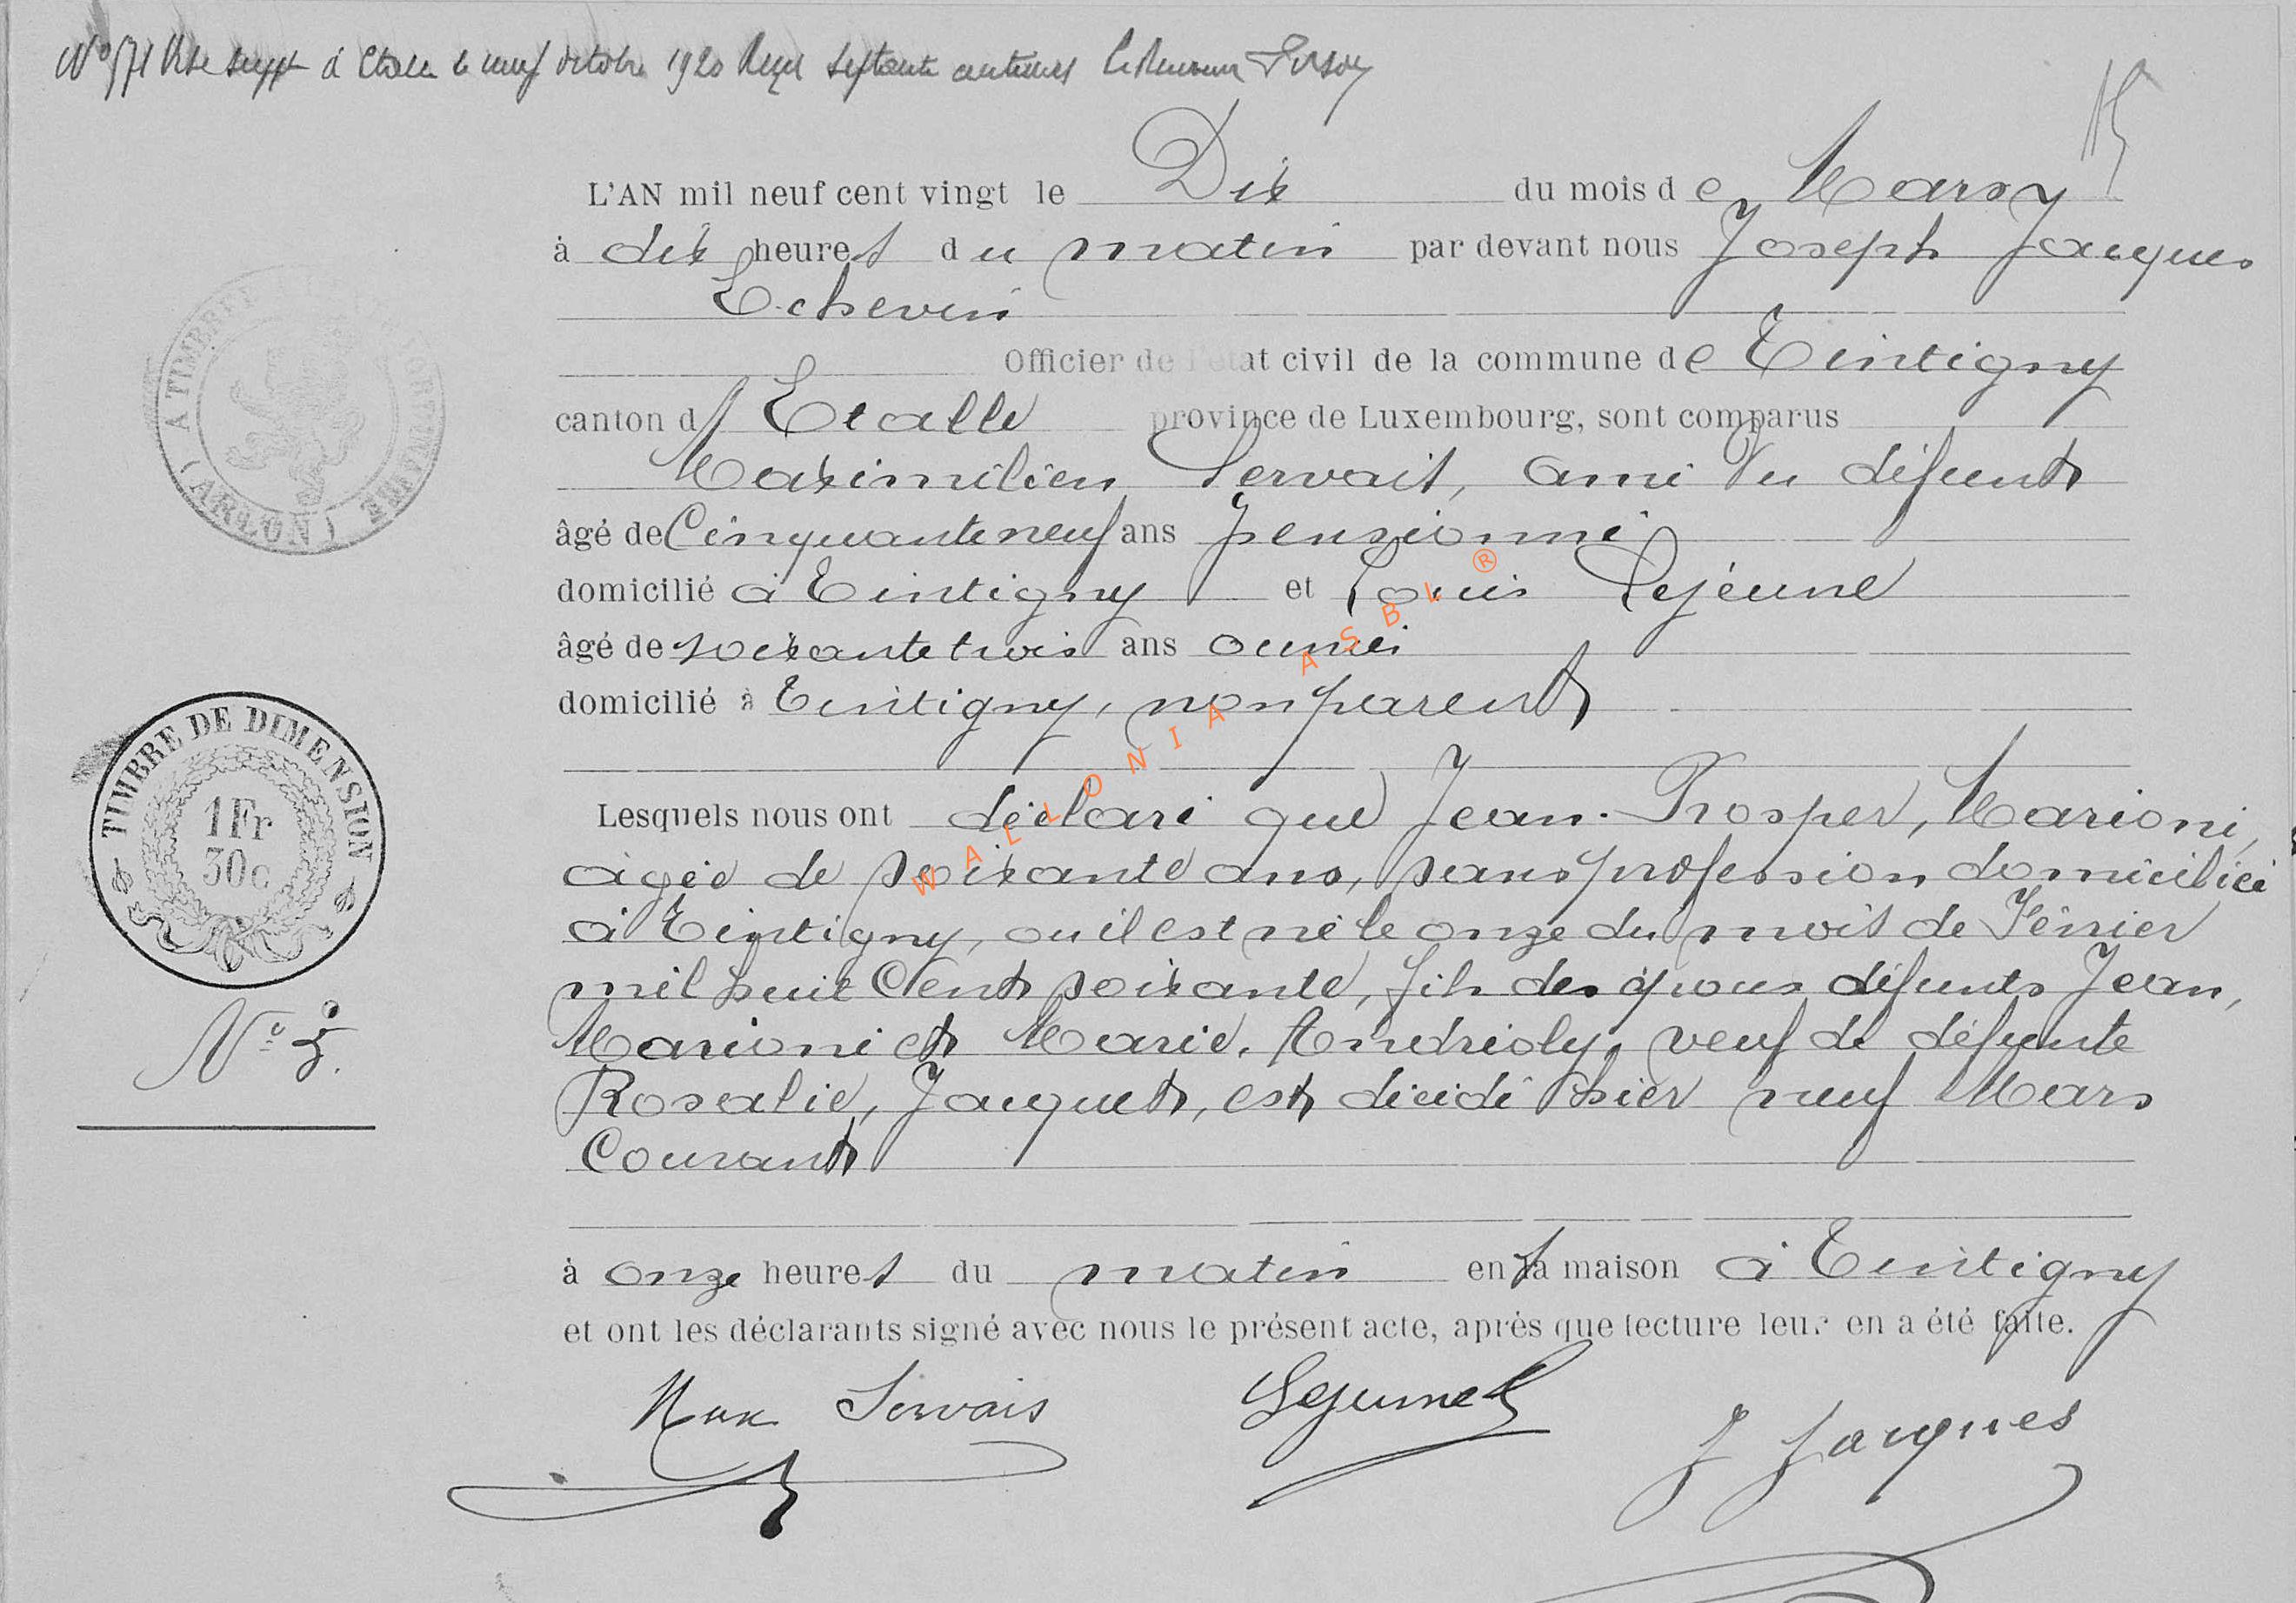 à Etalle le neuf octobre 1920 Reçu septante centimes Le Receveur
L'AN mil neuf cent vingt le Dix du mois de Mars
à dix heures du matin par devant nous Joseph Jacques
Echevin
Officier de l'état civil de la commune de Tintigny
canton d'Etalle province de Luxembourg, sont comparus
Maximilien Servais, ami du défunt
âgé de Cinquante neuf ans pensionné
domicilié à Tintigny et Louis Lejeune
âgé de soixante trois ans
domicilié à Tintigny, non parent
Lesquels nous ont déclaré que Jean. Prosper, Marioni,
âgée de soixante ans, sans profession domicilié
à Tintigny, ou il est né le onze du mois de Février
mil huit Cent soixante, fils des époux défunts Jean,
Marioni et Marie. Andrioly. veuf de défunte
Rosalie, Jacquet, est décédé hier neuf Mars
Courant
à onze heures du matin en sa maison à Tintigny
et ont les déclarants signé avec nous le présent acte, après que lecture leur en a été faite.
Max Servais Lejeune L J Jacques
A TIMBRE EXTRAORDINAIRE
(ARLON)
TIMBRE DE DIMENSION
1Fr
30c
N° 5.
WALLONIA ASBL ®